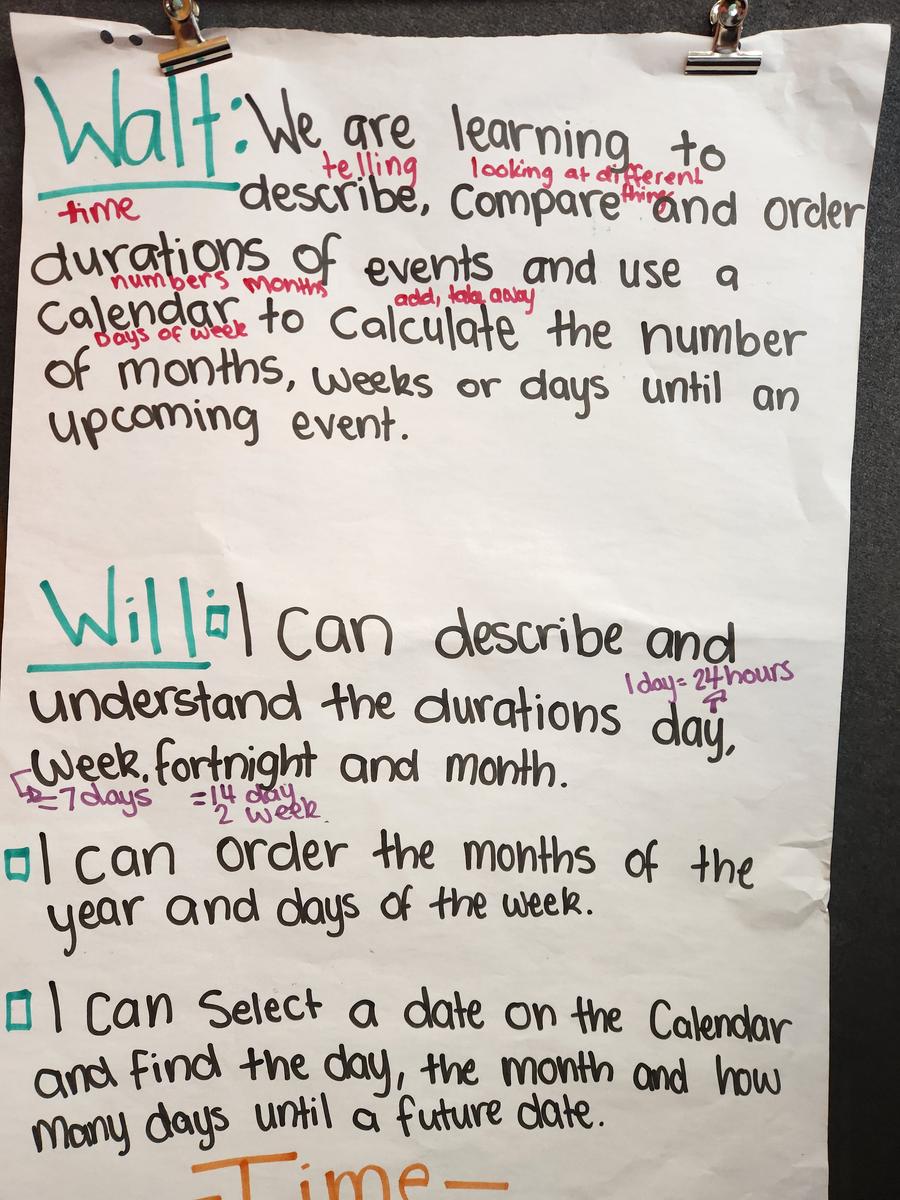 Walt: We are learning to
telling looking at different
describe, Compare things and order
time
durations of events and use a
numbers months add, take away
Calendar to Calculate the number
Days of week
of months, weeks or days until an
upcoming event.
Will: I Can describe and
understand the durations day,
1 day = 24 hours
week, fortnight and month.
= 7 days = 14 day
2 week.
I can order the months of the
year and days of the week.
I Can Select a date on the Calendar
and find the day, the month and how
many days until a future date.
-Time-